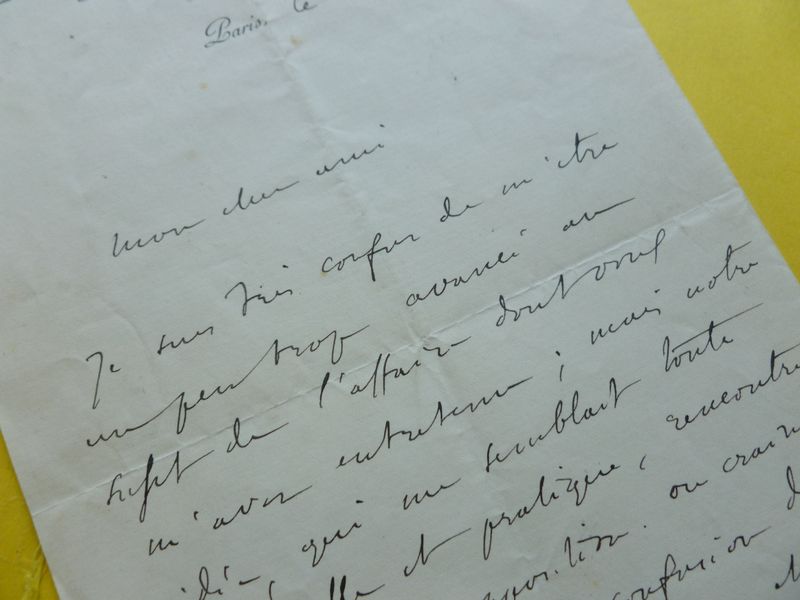 Paris, le
mon cher ami
Je suis très confus de m'être
un peu trop avancé au
sujet de l'affaire dont vous
m'avez entretenu ; mais notre
idée qui me semblait toute
et pratique, rencontre
opposition. on craint
confusion d